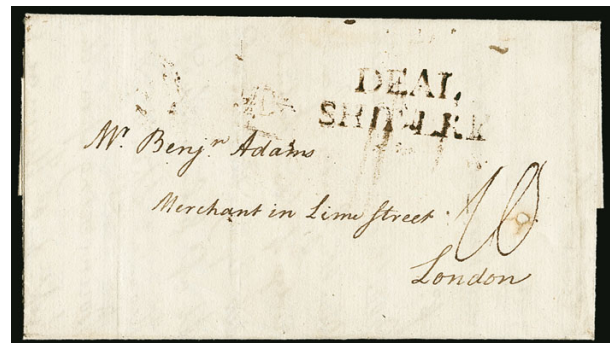 DEAL
SHIP LRE
Mr. Benjn Adams
Merchant in Lime Street
10
London